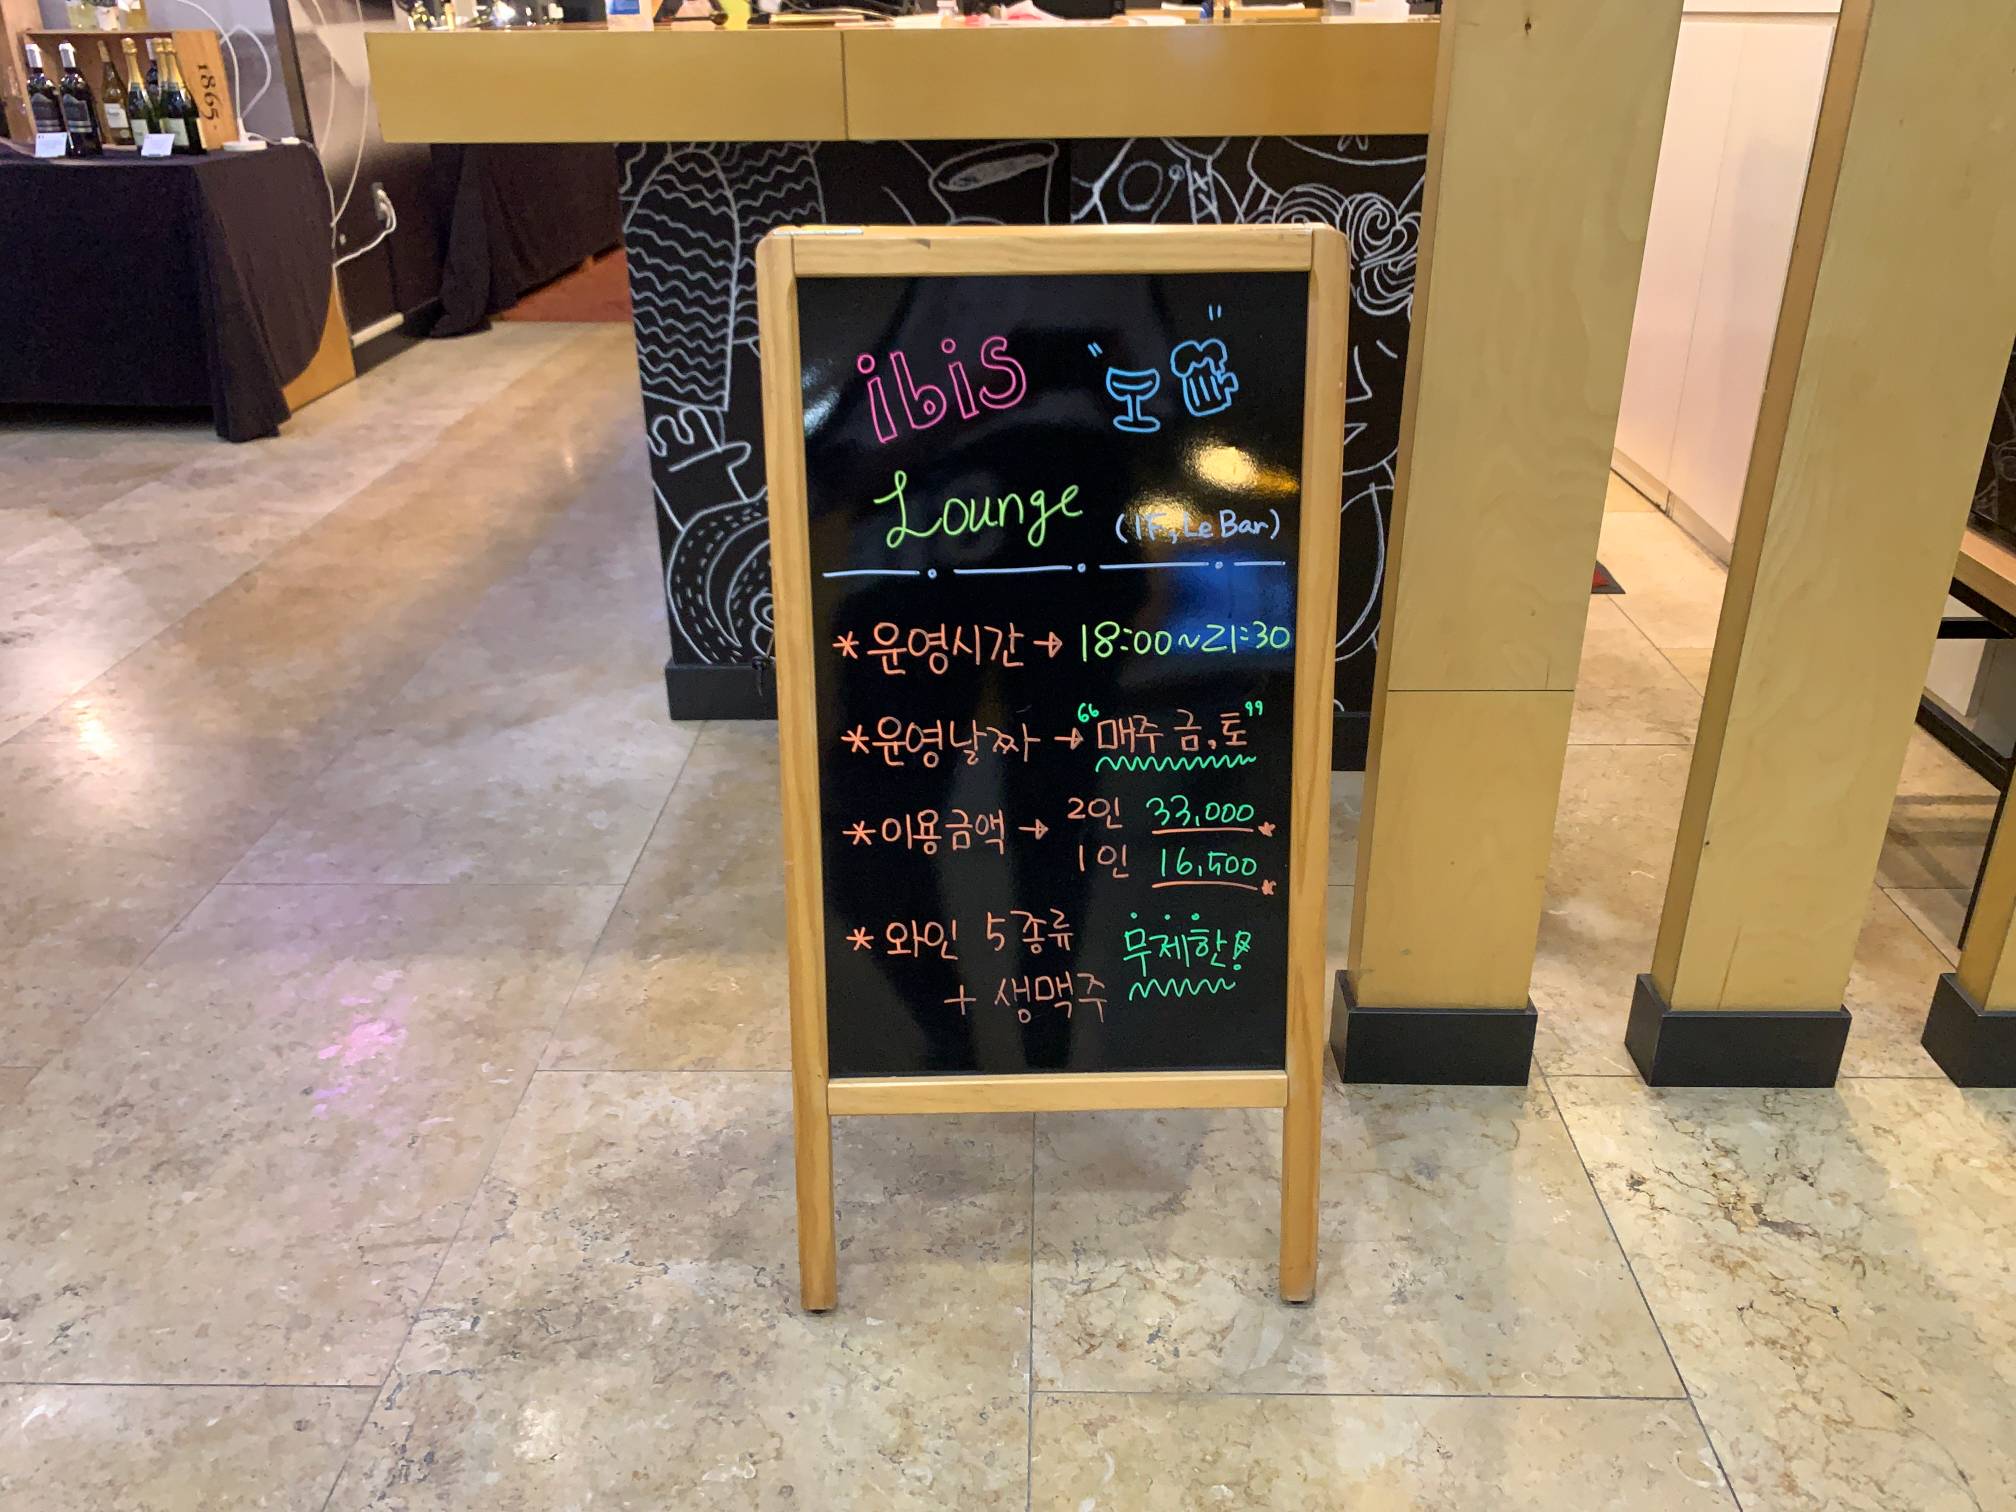 1865
ibis
Lounge (1F, Le Bar)
*운영시간→ 18:00~21:30
*운영날짜→ "매주 금,토"
*이용금액→ 2인 33,000*
1인 16,500*
*와인 5종류 무제한!
+ 생맥주